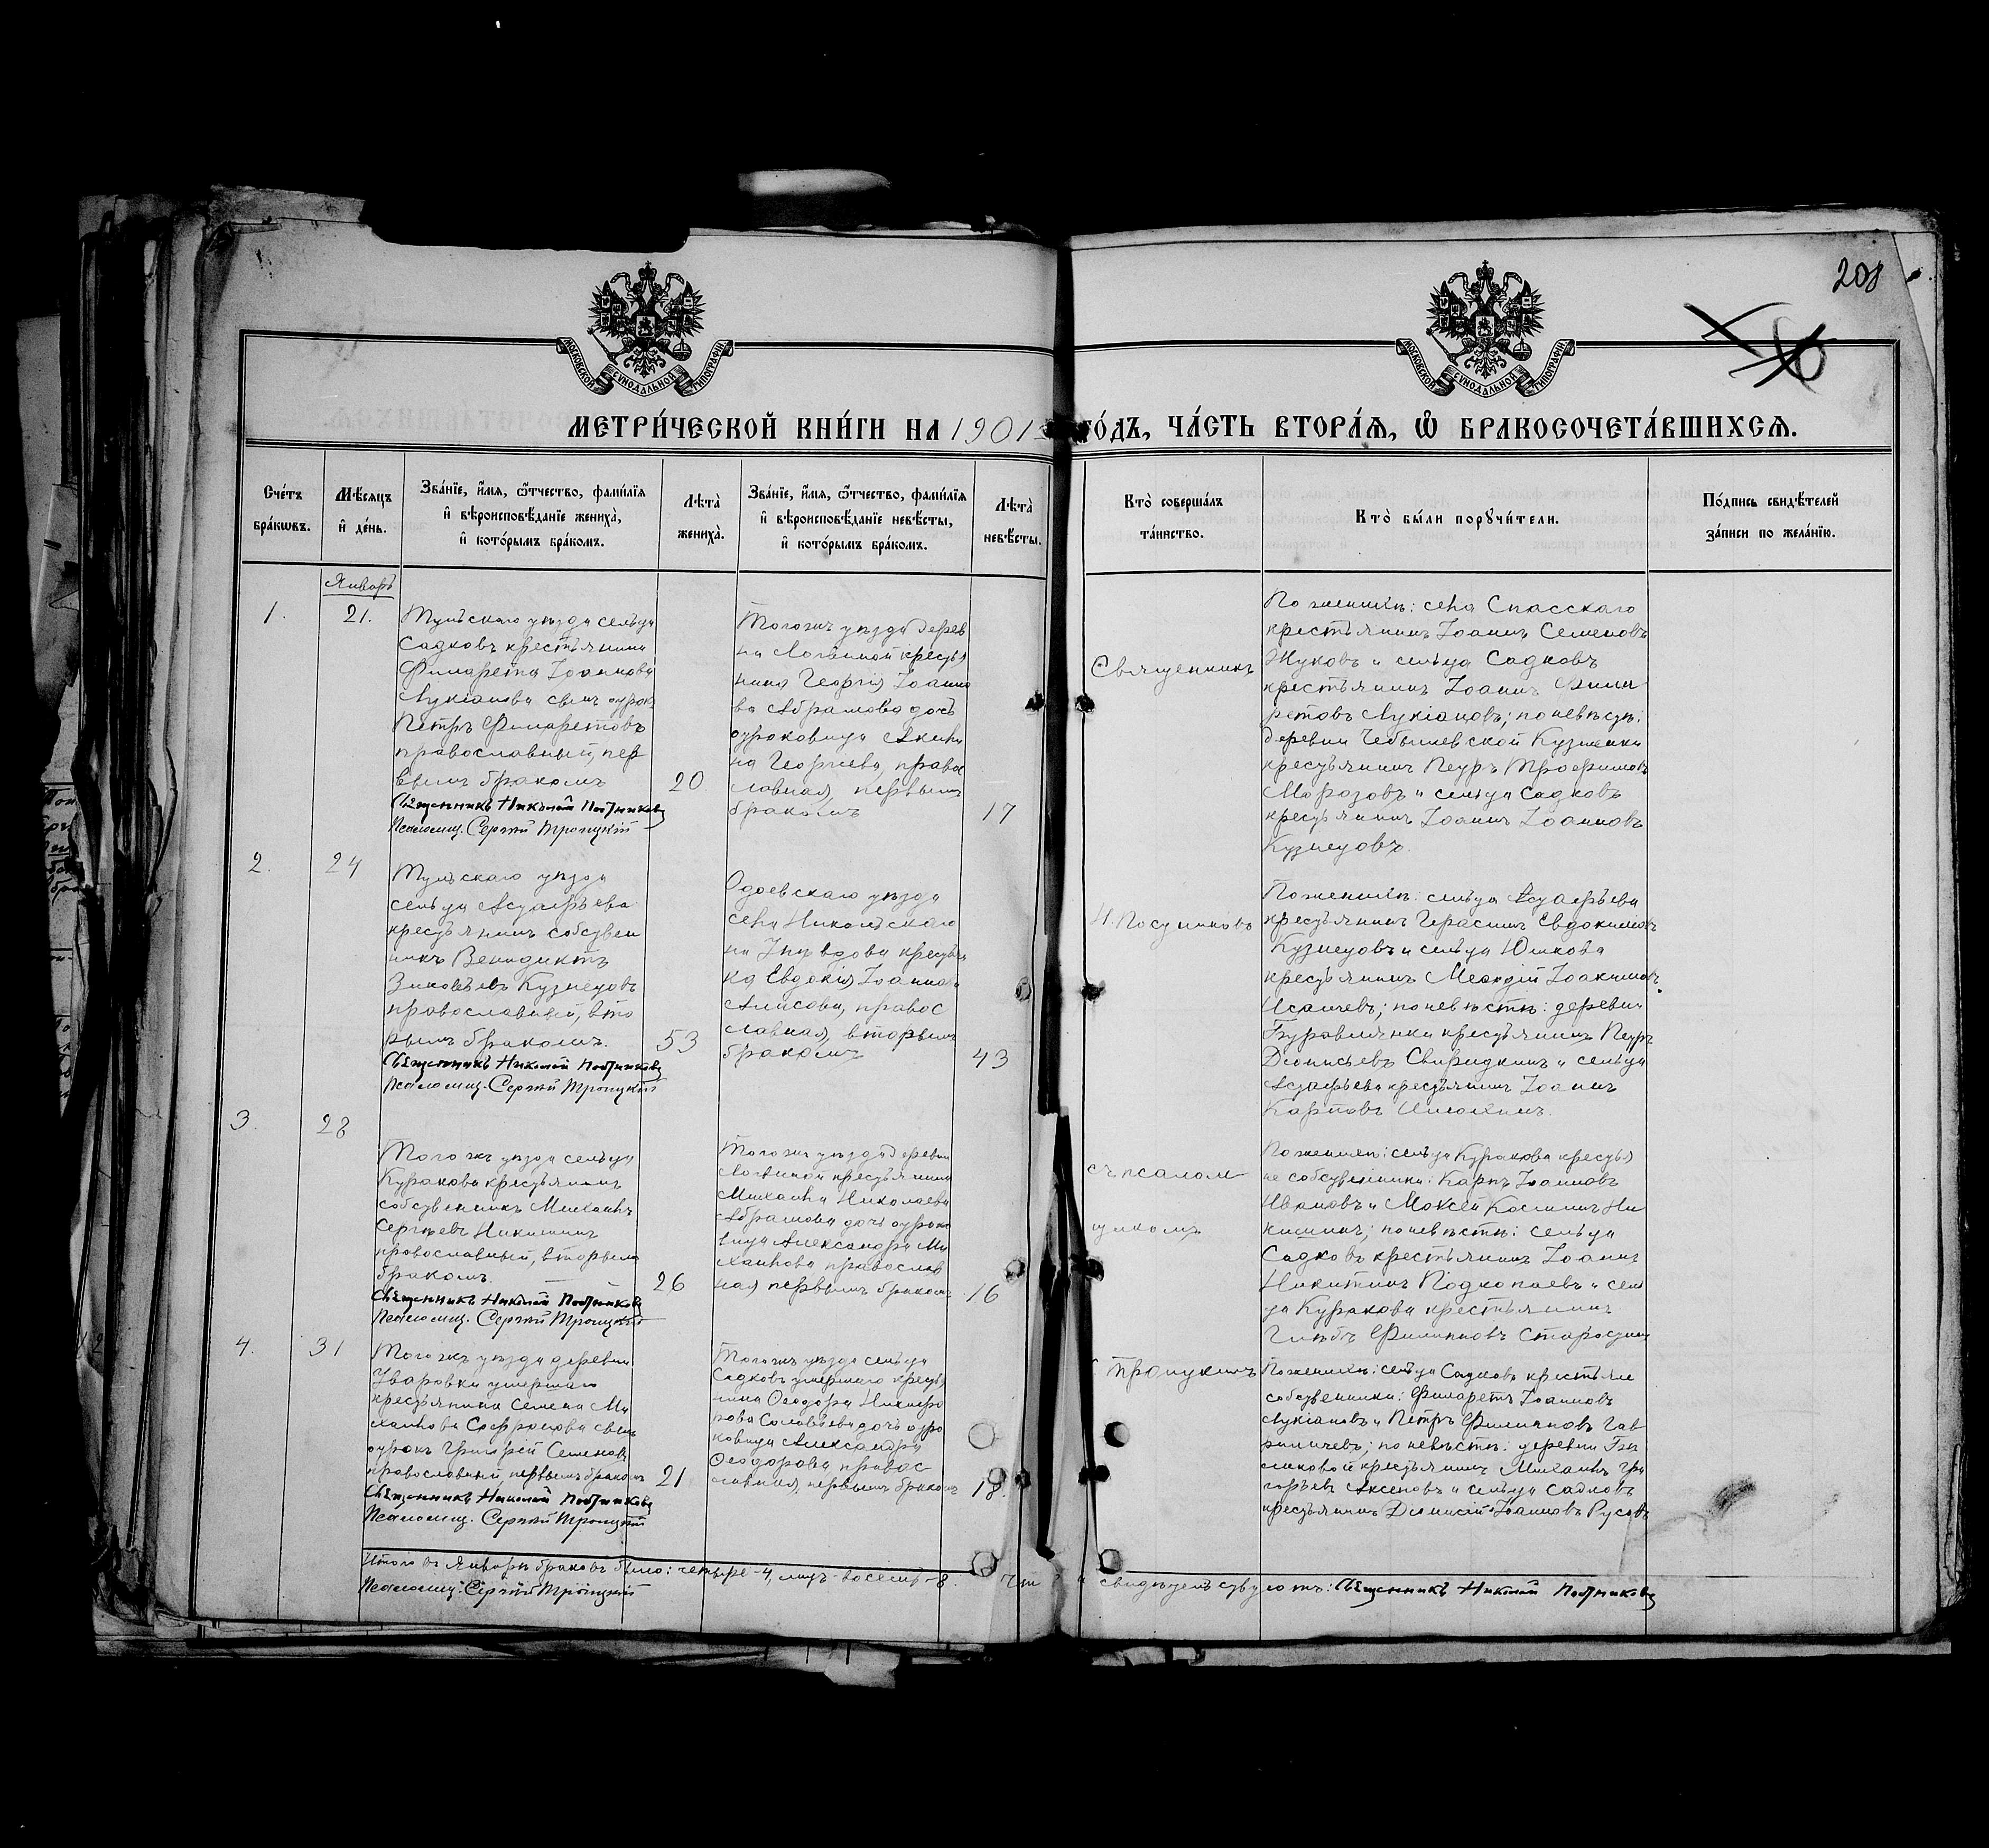 208
МОСКОВСКОЙ СѴНОДАЛЬНОЙ ТИПОГРАФІИ
МОСКОВСКОЙ СѴНОДАЛЬНОЙ ТИПОГРАФІИ
МЕТРИ́ЧЕСКОЙ КНИ́ГИ НА 1901 ГО́ДЪ, ЧА́СТЬ ВТОРА́Я, Ѡ БРАКОСОЧЕТА́ВШИХСЯ.
Сче́тъ бра́кѡвъ.
Мѣ́сяцъ и҆ де́нь.
Зва́нїе, и҆́мя, ѻ҆́тчество, фами́лїя
и҆ вѣроисповѣ́данїе жениха̀,
и҆ кото́рымъ бра́комъ.
Лѣта̀ жениха̀.
Зва́нїе, и҆́мя, ѻ҆́тчество, фами́лїя
и҆ вѣроисповѣ́данїе невѣ́сты,
и҆ кото́рымъ бра́комъ.
Лѣта̀ невѣ́сты.
Кто̀ соверша́лъ
та́инство.
Кто̀ бы́ли порꙋчи́тели.
По́дпись свидѣ́телей
за́писи по жела́нїю.
Январь
1.
21.
Тульскаго уѣзда сельца
Садковъ крестьянина
Филарета Іоаннова
Лукіанова сынъ отрокъ
Петръ Филаретовъ
православный, пер
вымъ бракомъ
Священникъ Николай Постниковъ
Псаломщ. Сергѣй Троицкій
20
Того жъ уѣзда дерев
ни Логиной крестья
нина Георгія Іоанно
ва Абрамова дочь
отроковица Акили
на Георгіева, правос
лавная, первымъ
бракомъ
17
Священникъ
По женихѣ: села Спасскаго
крестьянинъ Іоаннъ Семеновъ
Жуковъ и сельца Садковъ
крестьянинъ Іоаннъ Фила
ретовъ Лукіановъ; по невѣстѣ:
деревни Чебышевской Кузменки
крестьянинъ Петръ Трофимовъ
Морозовъ и сельца Садковъ
крестьянинъ Іоаннъ Іоанновъ
Кузнецовъ.
2.
24
Тульскаго уѣзда
сельца Астафьева
крестьянинъ собствен
никъ Венидиктъ
Зиновьевъ Кузнецовъ
православный, вто
рымъ бракомъ.
Священникъ Николай Постниковъ
Псаломщ. Сергѣй Троицкій
53
Одоевскаго уѣзда
села Никольскаго
вдова крестьян
ка Евдокія Іоаннова
Анисова, правос
лавная, вторымъ
бракомъ
43
Н. Постниковъ
По женихѣ: сельца Астафьева
крестьянинъ Герасимъ Евдокимовъ
Кузнецовъ и сельца Юшкова
крестьянинъ Меѳодій Іоакимовъ
Исаичевъ; по невѣстѣ: деревни
Журавлянки крестьянинъ Петръ
Діонисьевъ Свиридкинъ и сельца
Астафьева крестьянинъ Іоаннъ
Карповъ
3.
28
Того жъ уѣзда сельца
Куракова крестьянинъ
собственникъ Михаилъ
Сергѣевъ Никишинъ
православный, вторымъ
бракомъ.
Священникъ Николай Постниковъ
Псаломщ. Сергѣй Троицкій
26
Того жъ уѣзда деревни
Логиной крестьянина
Михаила Николаева
Абрамова дочь отроко
вица Александра Ми
хаилова православ
ная первымъ бракомъ
16
съ псалом
щикомъ
По женихѣ: сельца Куракова крестья
не собственники: Карпъ Іоанновъ
Ивановъ и Моисей Косминъ Ни
кишинъ; по невѣстѣ: сельца
Садковъ крестьянинъ Іоаннъ
Никитинъ Подкопаевъ и сель
ца Куракова крестьянинъ
Глѣбъ Филипповъ Старостин
4.
31
Того жъ уѣзда деревни
Уваровки умершаго
крестьянина Семена Ми
хаилова Сафронова сынъ
отрокъ Григорій Семеновъ
православный, первымъ бракомъ
Священникъ Николай Постниковъ
Псаломщ. Сергѣй Троицкій
21
Того жъ уѣзда сельца
Садковъ умершаго кресть
янина Ѳеодора Никифо
рова Соловьева дочь отро
ковица Александра
Ѳеодорова правос
лавная, первымъ бракомъ
18.
Троицкимъ
По женихѣ: сельца Садковъ крестьяне
собственники: Филаретъ Іоанновъ
Лукіановъ и Петръ Филипповъ Гав
риличевъ; по невѣстѣ: деревни
крестьянинъ Михаилъ Гри
горьевъ Аксеновъ и сельца Садковъ
крестьянинъ Діонисій Іоанновъ Русовъ
Итого въ Январѣ браковъ было: четыре - 4, лицъ - восемь - 8. Что и свидѣтельствуютъ: Священникъ Николай Постниковъ
Псаломщ. Сергѣй Троицкій